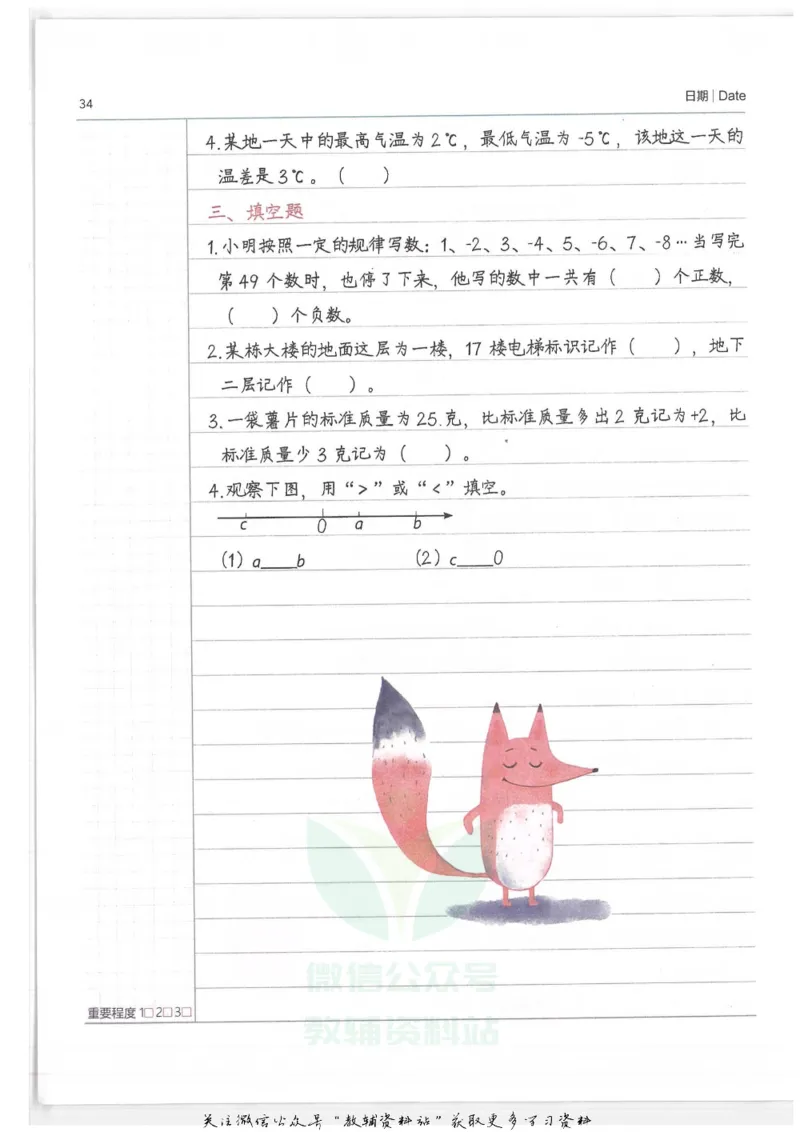 34
日期 | Date
4.某地一天中的最高气温为2℃，最低气温为-5℃，该地这一天的
温差是3℃。（  ）
三、填空题
1.小明按照一定的规律写数：1、-2、3、-4、5、-6、7、-8…当写完
第49个数时，也停了下来，他写的数中一共有（  ）个正数，
（  ）个负数。
2.某栋大楼的地面这层为一楼，17楼电梯标识记作（  ），地下
二层记作（  ）。
3.一袋薯片的标准质量为25.克，比标准质量多出2克记为+2，比
标准质量少3克记为（  ）。
4.观察下图，用“>”或“<”填空。
c 0 a b
(1) a___b (2) c___0
微信公众号
教辅资料站
重要程度 1□ 2□ 3□
关注微信公众号“教辅资料站”获取更多学习资料